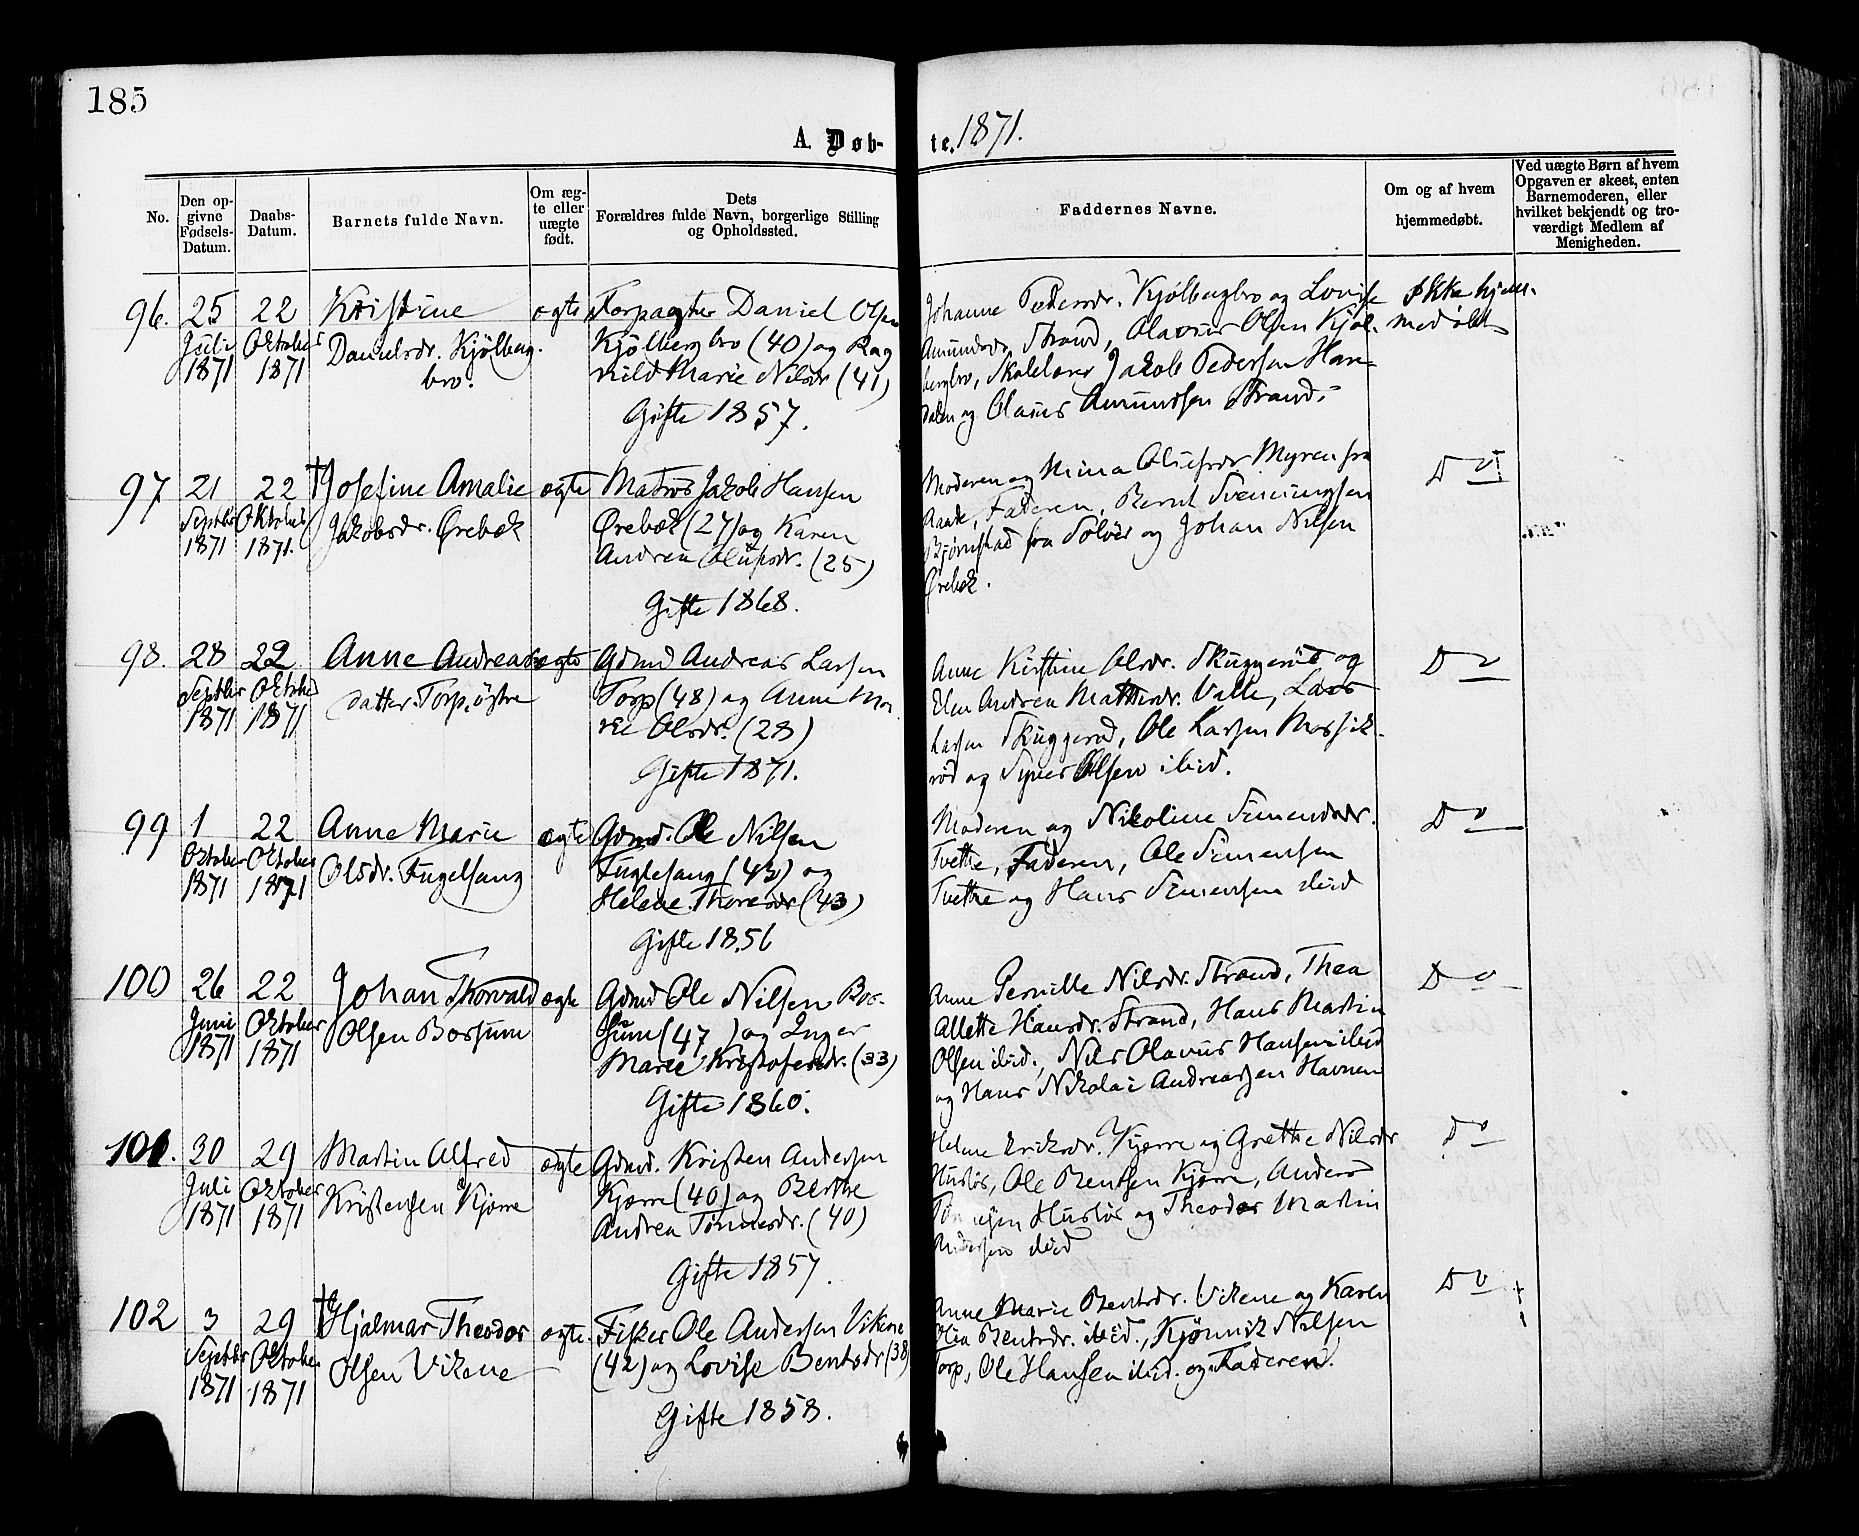 185
A. Døb-
te. 1871.
No.
Den op-
givne
Fødsels-
Datum.
Daabs-
Datum.
Barnets fulde Navn.
Om æg-
te eller
uægte
født.
Dets
Forældres fulde Navn, borgerlige Stilling
og Opholdssted.
Faddernes Navne.
Om og af hvem
hjemmedøbt.
Ved uægte Børn af hvem
Opgaven er skeet, enten
Barnemoderen, eller
hvilket bekjendt og tro-
værdigt Medlem af
Menigheden.
96.
25
Juli
1871
22
Oktober
1871
Kristine
Danielsdr. Kjølberg-
bro.
ægte
Forpagter Daniel Olsen
Kjølbergbro (40) og Rag
nild Marie Nilsdr (41)
Gifte 1857.
Johanne Pedersdr. Kjølbergbro og Lovise
Amundsdr Strand, Olavus Olsen Kjøl-
bergbro, Skolelærer Jakob Pedersen Han-
dalen og Olaus Amundsen Strand.
Ikke hjem-
medøbt
97
21
Septbr
1871
22
Oktober
1871.
† Josefine Amalie
Jakobsdr. Ørebæk
ægte
Matros Jakob Hansen
Ørebæk (27) og Karen
Andrea Olufsdr. (25)
Gifte 1868.
Moderen og Mina Olufsdr Myren fra
Raade, Faderen, Bernt Svenningsen
Bjørnstad fra Tolvsr og Johan Nilsen
Ørebæk.
Do
98.
28
Septbr
1871
22
Oktober
1871
Anne Andreas-
datter. Torp, østre
ægte
Gdmd Andreas Larsen
Torp (48) og Anne Ma
rie Olsdr. (28)
Gifte 1871.
Anne Kirstine Olsdr. Skuggerud og
Elen Andrea Mathisdr. Valle, Lars
Larsen Skuggerød, Ole Larsen Mossik-
rød og Syver Olsen ibid.
Do
99
1
Oktober
1871
22
Oktober
1871
Anne Marie
Olsdr. Fugelsang
ægte
Gdmd. Ole Nilsen
Fuglesang (43) og
Helene Thoresdr (43)
Gifte 1856
Moderen og Nikoline Simensdr.
Tvethe, Faderen, Ole Simensen
Tvethe og Hans Simensen ibid
Do
100
26
Juni
1871
22
Oktober
1871
Johan Thorvald
Olsen Bossum
ægte
Gdmd Ole Nilsen Bos-
sum (47) og Inger
Marie Kristofersdr. (33)
Gifte 1860.
Anne Pernille Nilsdr. Strand, Thea
Allette Hansdr. Strand, Hans Martin
Olsen ibid., Nils Olavus Hansen ibid
og Hans Nikolai Andreassen Havnen
Do
101.
30
Juli
1871
29
Oktober
1871
Martin Alfred
Kristensen Kjørre
ægte
Gdmd. Kristen Andersen
Kjørre (40) og Berthe
Andrea Tønnesdr. (40)
Gifte 1857.
Helene Eriksdr. Kjørre og Grethe Nilsdr
Husløs, Ole Bentsen Kjørre, Anders
Tønnesen Husløs og Theodor Martin
Andersen ibid
Do
102
3
Septbr
1871
29
Oktober
1871
† Hjalmar Theodor
Olsen Vikene
ægte.
Fisker Ole Andersen Vikene
(42) og Lovise Bentsdr (38)
Gifte 1858.
Anne Marie Bentsdr. Vikene og Karen
Olea Bentsdr. ibid., Kjønnik Nilsen
Torp, Ole Hansen ibid. og Faderen.
Do